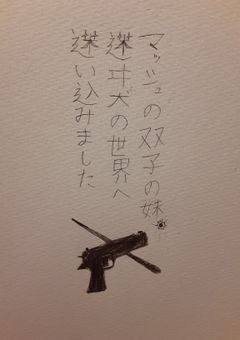 マッシュの双子の妹
迷ヰ犬の世界へ
迷い込みました